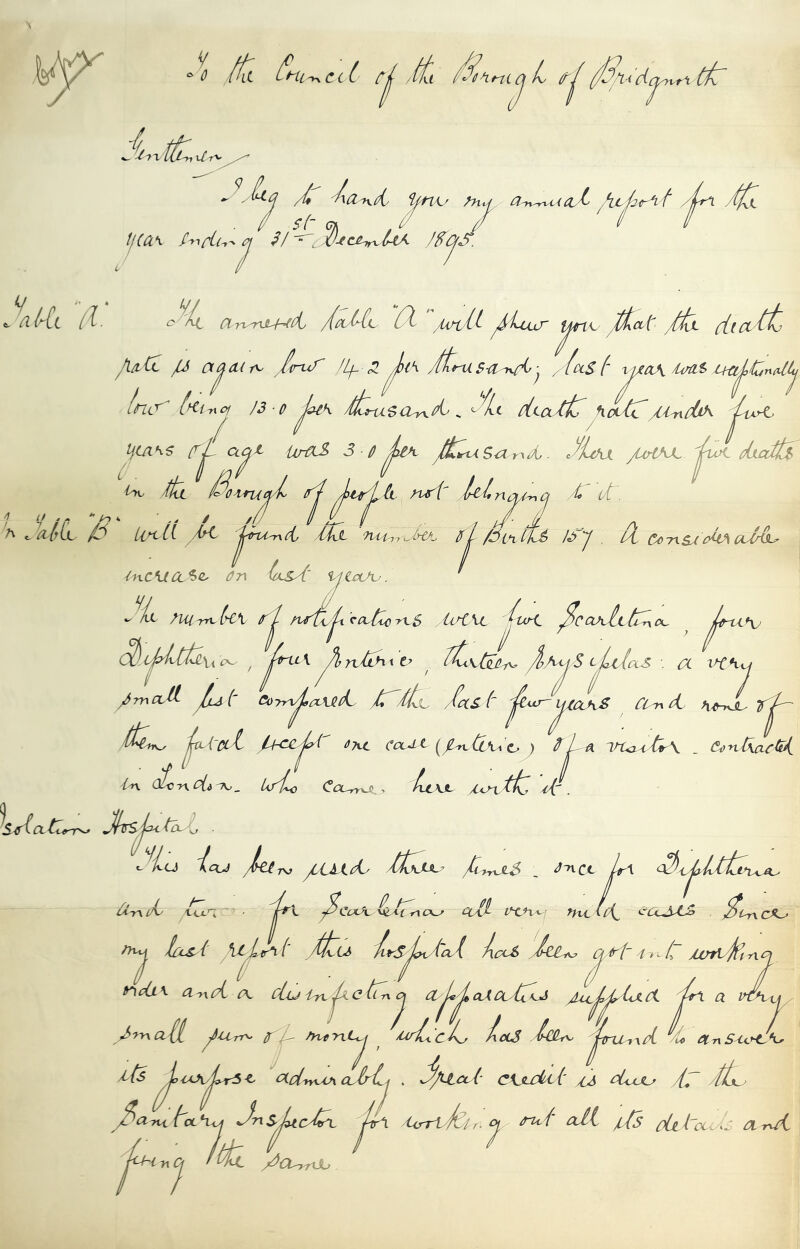 Copy
To the Council of the Borough of Bridgnorth
Gentlemen,
I beg to hand you my annual report for the
year ending 31st December 1895.
Table "A". The annexed table "A" will shew you that the death
rate is again low 14.2 per thousand; last year was exceptionally
low being 13.0 per thousand. The death rate under five
years of age was 3.0 per thousand. There were five deaths
in the Borough of people not belonging to it.
In Table "B" will be found the number of Births 157. A considerable
increase on last year.
The number of notifications were five Scarletina, four
Diphtheria, four Enteric, thirteen Erysipelas: a very
small list compared to the last few years, and none of
them fatal except one case (Enteric) of a visitor - contracted
in London - who came here with it.
Isolation Hospital.
This has been used three times - once for Diphtheria
and two for Scarletina all very mild cases. Since
my last report this hospital has been got into working
order and a disinfecting apparatus supplied for a very
small sum of money, which has been found to answer
its purpose admirably. Great credit is due to the
Sanitary Inspector for working out all its details and
fixing the same.